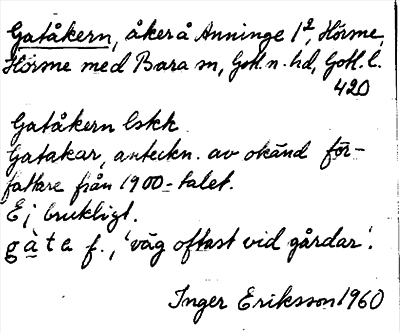 Gatåkern, åker å Anninge 1², Hörsne,
Hörsne med Bara sn, Gotl. n. hd, Gotl. l.
420
Gatåkern Eskh
Gatakar, anteckn. av okänd för-
fattare från 1900-talet.
Ej brukligt.
gàta f., 'väg oftast vid gårdar'.
Inger Eriksson 1960